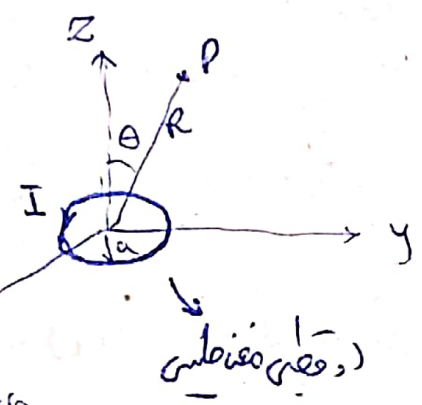 Z
P
θ
R
I
a
y
دوقطبی مغناطیسی